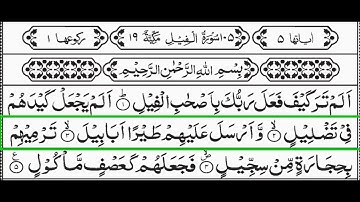 اٰیاتها ٥ ١٠٥ سُوْرَةُ الْفِیْلِ مَكِّیَّةٌ ١٩ ركوعها ١
بِسْمِ اللهِ الرَّحْمٰنِ الرَّحِیْمِ
اَلَمْ تَرَ كَیْفَ فَعَلَ رَبُّكَ بِاَصْحٰبِ الْفِیْلِ ۝١ اَلَمْ یَجْعَلْ كَیْدَهُمْ
فِیْ تَضْلِیْلٍ ۝٢ وَّاَرْسَلَ عَلَیْهِمْ طَیْرًا اَبَابِیْلَ ۝٣ تَرْمِیْهِمْ
بِحِجَارَةٍ مِّنْ سِجِّیْلٍ ۝٤ فَجَعَلَهُمْ كَعَصْفٍ مَّاْكُوْلٍ ۝٥